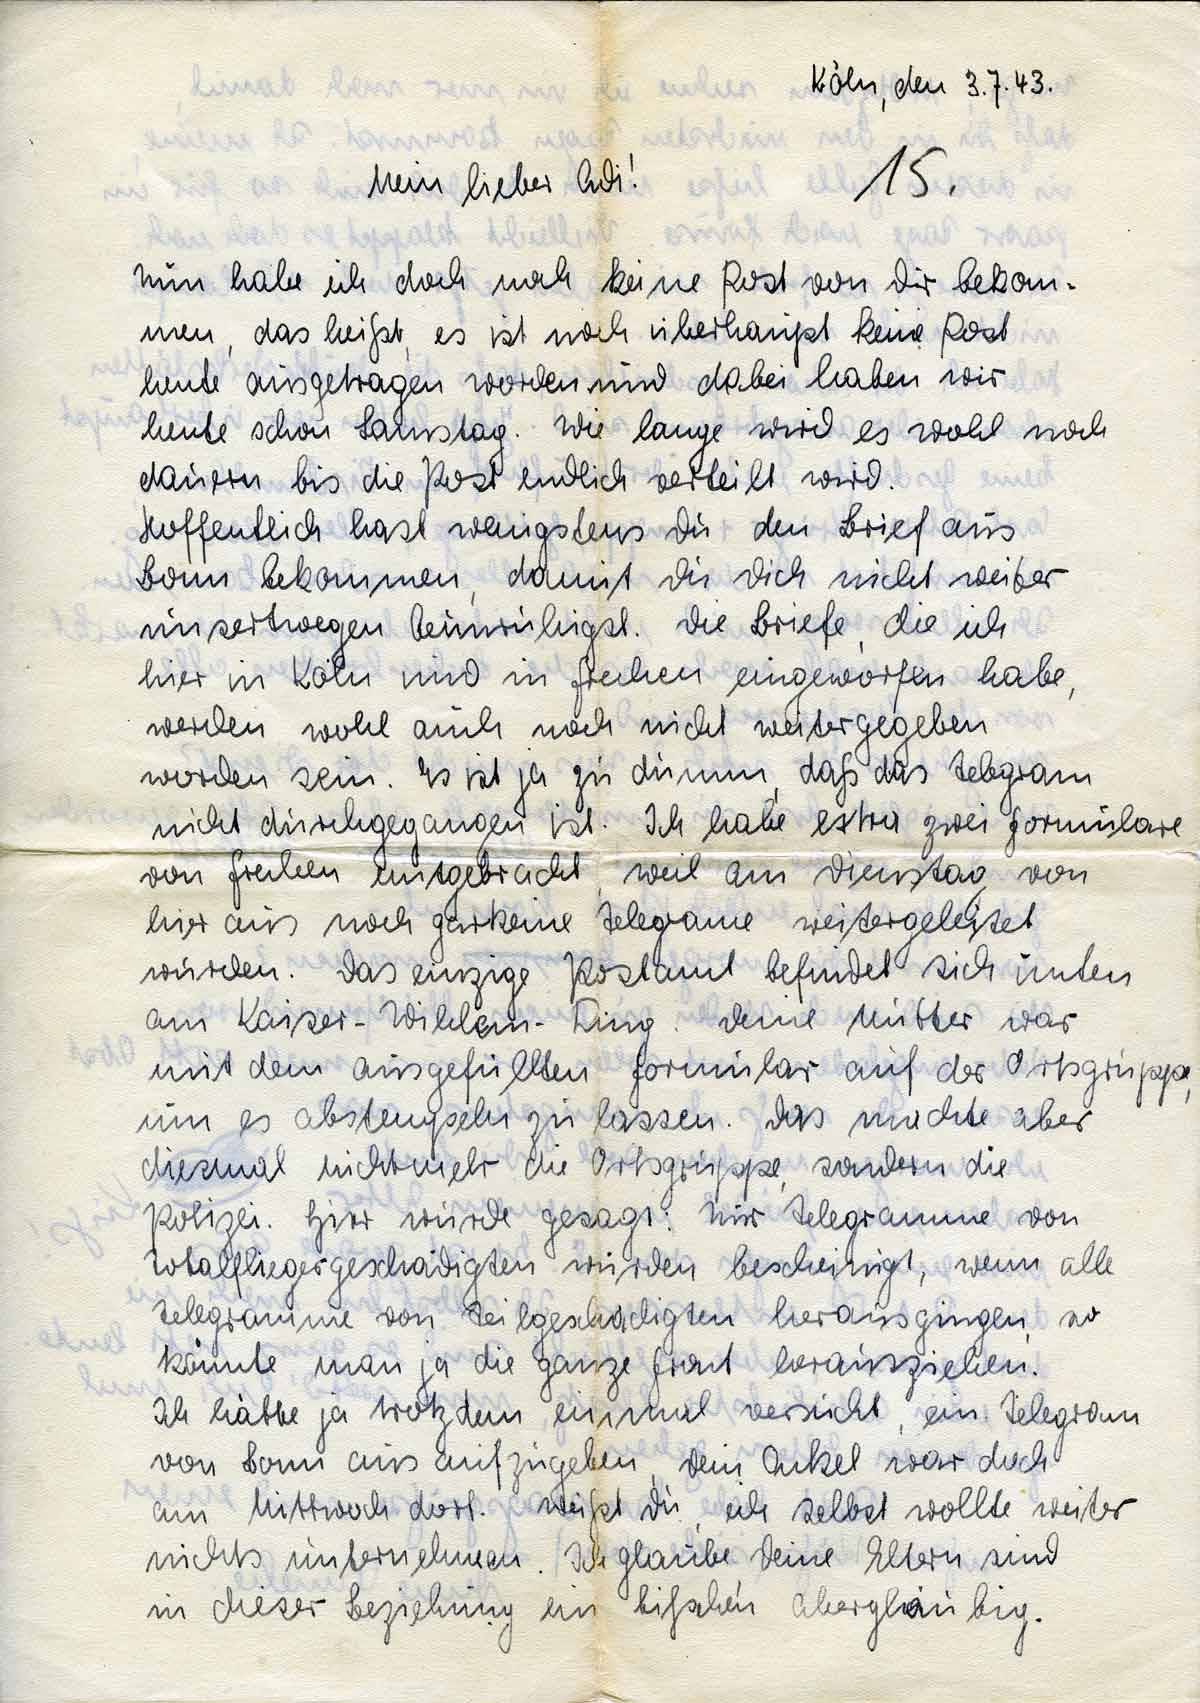 Köln, den 3.7.43.
Mein lieber Adi!
15.
Nun habe ich doch noch keine Post von Dir bekom-
men, das heißt, es ist noch überhaupt keine Post
heute ausgetragen worden und dabei haben wir
heute schon Samstag. Wie lange wird es wohl noch
dauern bis die Post endlich verteilt wird.
Hoffentlich hast wenigstens Du den Brief aus
Bonn bekommen, damit Du Dich nicht weiter
unsertwegen beunruhigst. Die Briefe, die ich
hier in Köln und in Frechen eingeworfen habe,
werden wohl auch noch nicht weitergegeben
worden sein. Es ist ja zu dumm, daß das Telegram
nicht durchgegangen ist. Ich habe extra zwei Formulare
von Frechen mitgebracht, weil am Dienstag von
hier aus noch garkeine Telegrame weitergeleitet
wurden. Das einzige Postamt befindet sich unten
am Kaiser-Wilhelm-Ring. Deine Mutter war
mit dem ausgefüllten Formular auf der Ortsgruppe,
um es abstempeln zu lassen. Das machte aber
diesmal nichtmehr die Ortsgruppe, sondern die
Polizei. Hier wurde gesagt: Nur Telegramme von
Totalfliegergeschädigten würden bescheinigt, wenn alle
Telegramme von Teilgeschädigten herausgingen, so
könnte man ja die ganze Front herausziehen.
Ich hätte ja trotzdem einmal versucht, ein Telegram
von Bonn aus aufzugeben, dein Onkel war doch
am Mittwoch dort. Weißt Du, ich selbst wollte weiter
nichts unternehmen. Ich glaube Deine Eltern sind
in dieser Beziehung ein bißchen abergläubig.